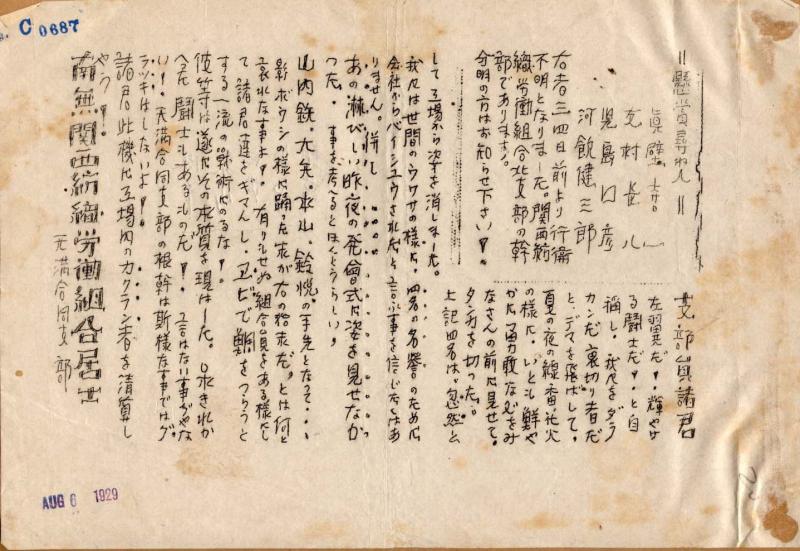 C 0687
＝懸賞尋ね人＝
真壁
支村長八
児島口彦
河飯健三郎
右者三四日前より行衛
不明となりました。関西紡
織労働組合北支部の幹
部であります。
分明の方はお知らせ下さい！。
支部員諸君
左翼だ！輝やけ
る闘士だ！と自
称し、我々をダラ
カンだ裏切り者だ
と、デマを飛ばして、
夏の夜の線香花火
の様に、いとも鮮や
かな勇敢な を
なさんの前に見せて、
タンカを切った。
上記四名は、忽然と
して工場から姿を消しました。
我々は世間のウワサの様に、四名の名誉のために
会社からバイシュウされたと言ふ事を信じたくはあ
りません。併し……
あの淋びしい昨夜の発會式に姿を見せなか
った。事を考へるとほんとうらしい。
山内鉄、大矢、氷山、鈴悦の手先となって…
影ボウシの様に踊った末が右の始末だ。とは何と
哀れな事よ！有りもせぬ組合員をある様にし
て諸君達をギマンし、エビで鯛をつらうと
する一流の戦術にのるな！
彼等は遂にその本質を現はした。口火きれか
へた闘士もあるものだ！言はない事ぢやな
い！天満合同支部の根幹は斯様な事ではグ
ラツキはしないよ！
諸君此機に工場内のカクラン者を清算し
やう！
南無関西紡織労働組合居士
天満合同支部
AUG 6 1929